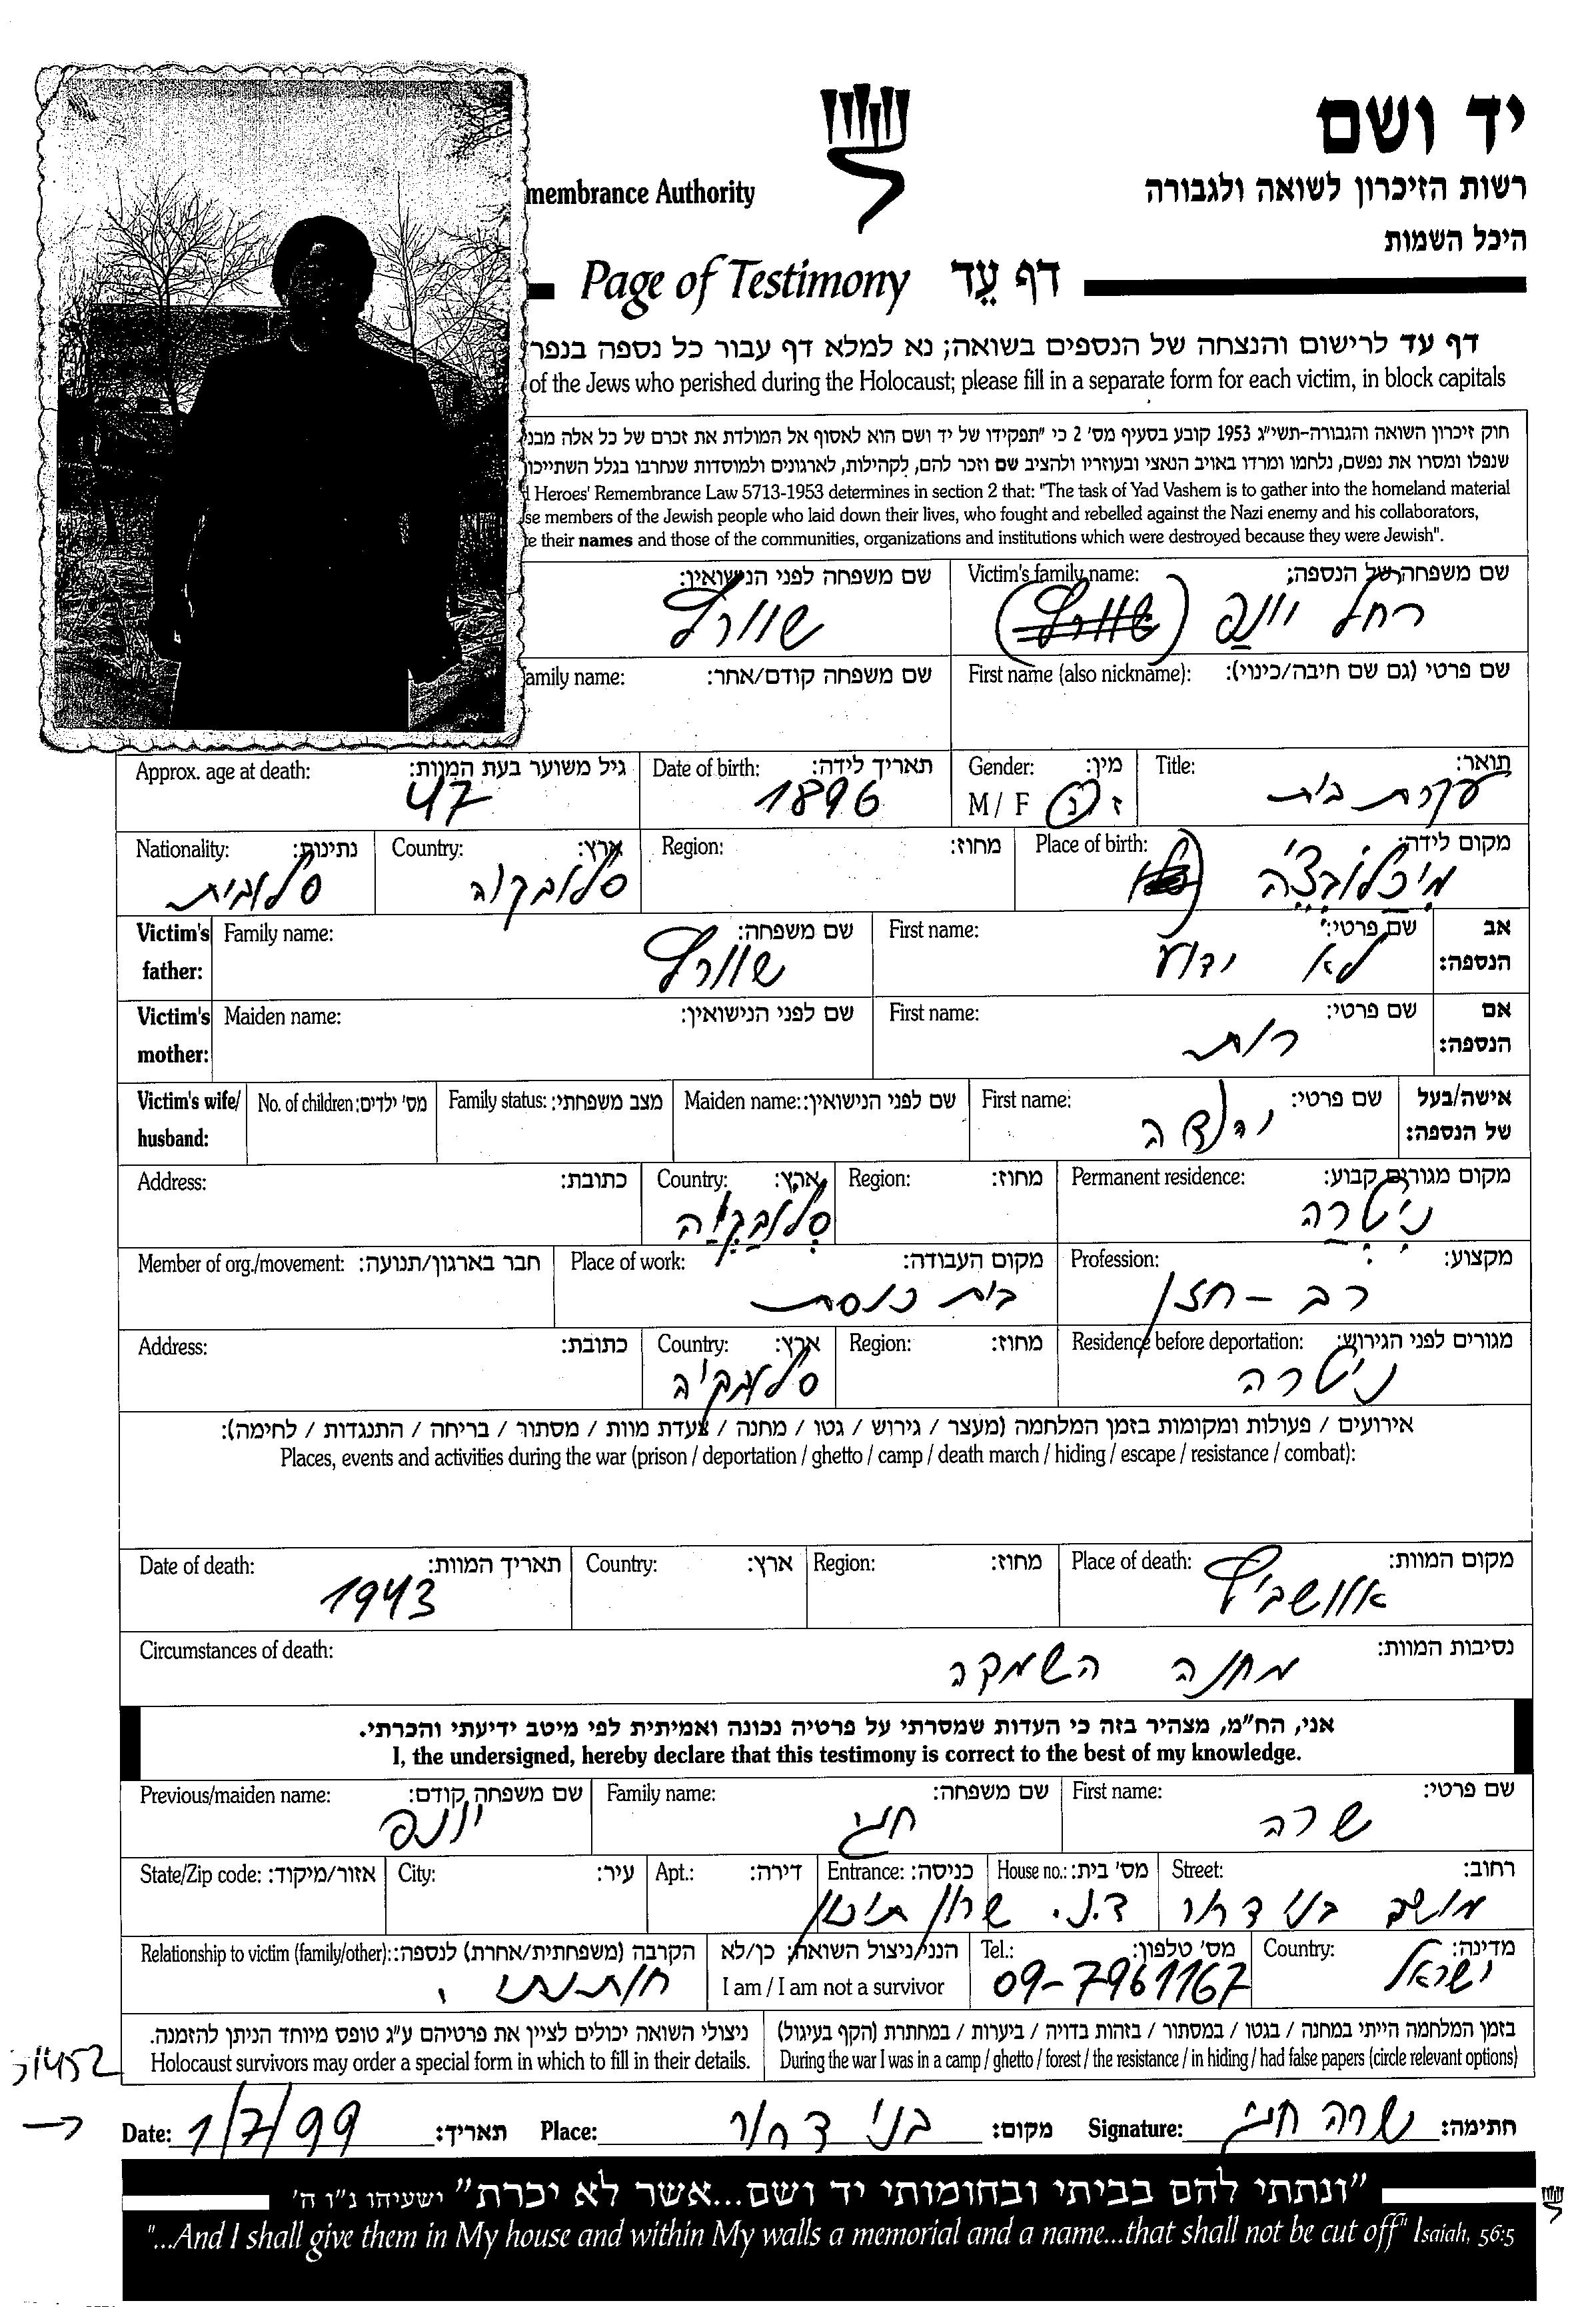 יד ושם
רשות הזיכרון לשואה ולגבורה
היכל השמות
membrance Authority
Page of Testimony דף עֵד
דף עד לרישום והנצחה של הנספים בשואה; נא למלא דף עבור כל נספה בנפר
of the Jews who perished during the Holocaust; please fill in a separate form for each victim, in block capitals
חוק זיכרון השואה והגבורה-תשי״ג 1953 קובע בסעיף מס׳ 2 כי ״תפקידו של יד ושם הוא לאסוף אל המולדת את זכרם של כל אלה מבנ
שנפלו ומסרו את נפשם, נלחמו ומרדו באויב הנאצי ובעוזריו ולהציב שם וזכר להם, לקהילות, לארגונים ולמוסדות שנחרבו בגלל השתייכו
Heroes' Remembrance Law 5713-1953 determines in section 2 that: "The task of Yad Vashem is to gather into the homeland material
se members of the Jewish people who laid down their lives, who fought and rebelled against the Nazi enemy and his collaborators,
e their names and those of the communities, organizations and institutions which were destroyed because they were Jewish".
שם משפחה של הנספה: Victim's family name: שם משפחה לפני הנישואין:
רחל יונפ (שוורץ) שוורץ
שם פרטי (גם שם חיבה/כינוי): First name (also nickname): שם משפחה קודם/אחר: amily name:
תואר: Title: מין: Gender: תאריך לידה: Date of birth: גיל משוער בעת המוות: Approx. age at death:
עקרת בית ז נ M/ F 1896 47
מקום לידה: Place of birth: מחוז: Region: ארץ: Country: נתינות: Nationality:
מיכלובצה סלובקיה סלובית
אב הנספה: שם פרטי: First name: שם משפחה: Family name: Victim's father:
לא ידוע שוורץ
אם הנספה: שם פרטי: First name: שם לפני הנישואין: Maiden name: Victim's mother:
רות
אישה/בעל של הנספה: שם פרטי: First name: שם לפני הנישואין: Maiden name: מצב משפחתי: Family status: מס׳ ילדים: No. of children: Victim's wife/ husband:
יהודה
מקום מגורים קבוע: Permanent residence: מחוז: Region: ארץ: Country: כתובת: Address:
ניטרה סלובקיה
מקצוע: Profession: מקום העבודה: Place of work: חבר בארגון/תנועה: Member of org./movement:
רב - חזן בית כנסת
מגורים לפני הגירוש: Residence before deportation: מחוז: Region: ארץ: Country: כתובת: Address:
ניטרה סלובקיה
אירועים / פעולות ומקומות בזמן המלחמה (מעצר / גירוש / גטו / מחנה / צעדת מוות / מסתור / בריחה / התנגדות / לחימה):
Places, events and activities during the war (prison / deportation / ghetto / camp / death march / hiding / escape / resistance / combat):
מקום המוות: Place of death: מחוז: Region: ארץ: Country: תאריך המוות: Date of death:
אוושביץ 1943
נסיבות המוות: Circumstances of death:
מחנה השמדה
אני, הח״מ, מצהיר בזה כי העדות שמסרתי על פרטיה נכונה ואמיתית לפי מיטב ידיעתי והכרתי.
I, the undersigned, hereby declare that this testimony is correct to the best of my knowledge.
שם פרטי: First name: שם משפחה: Family name: שם משפחה קודם: Previous/maiden name:
שרה חגי יונפ
רחוב: Street: מס׳ בית: House no.: כניסה: Entrance: דירה: Apt.: עיר: City: אזור/מיקוד: State/Zip code:
מושב בני דרור ד.נ. שרון תיכון
מדינה: Country: מס׳ טלפון: Tel.: הנני/ניצול השואה: כן/לא הקרבה (משפחתית/אחרת) לנספה: Relationship to victim (family/other):
ישראל 09-7961167 I am / I am not a survivor חותנתי
בזמן המלחמה הייתי במחנה / בגטו / במסתור / בזהות בדויה / ביערות / במחתרת (הקף בעיגול) ניצולי השואה יכולים לציין את פרטיהם ע״ג טופס מיוחד הניתן להזמנה.
During the war I was in a camp / ghetto / forest / the resistance / in hiding / had false papers (circle relevant options) Holocaust survivors may order a special form in which to fill in their details.
חתימה: שרה חגי Signature: מקום: בני דרור Place: תאריך: 1/7/99 Date:
״ונתתי להם בביתי ובחומותי יד ושם...אשר לא יכרת״ ישעיהו נ״ו ה׳
"...And I shall give them in My house and within My walls a memorial and a name...that shall not be cut off" Isaiah, 56:5